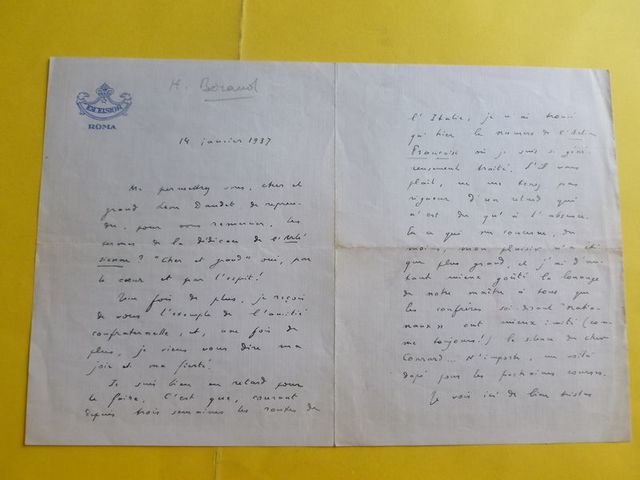 EXCELSIOR
ROMA
H. Béraud
14 janvier 1937
Me permettrez vous, cher et
grand Léon Daudet de repren-
dre, pour vous remercier, les
termes de la dédicace de l'Arlé
sienne ? "Cher et grand" oui, par
le cœur et par l'esprit !
Une fois de plus, je reçois
de vous l'exemple de l'amitié
confraternelle, et, une fois de
plus, je viens vous dire ma
joie et ma fierté.
Je suis bien en retard pour
le faire. C'est que, courant
depuis trois semaines les routes de
l'Italie, je n'ai trouvé
qu'hier le numéro de l'Action
Française où je suis si géné-
reusement traité. S'il vous
plaît, ne me tenez pas
rigueur d'un retard qui
n'est dû qu'à l'absence.
En ce qui me concerne, du
moins, mon plaisir n'a été
que plus grand, et j'ai d'au-
tant mieux goûté la louange
de notre maître à tous que
les confrères soi-disant "natio-
naux" ont mieux imité (com-
me toujours !) le silence du cher
Conrard... N'importe, me voilà
dopé pour les prochaines courses.
Je vois ici de bien tristes